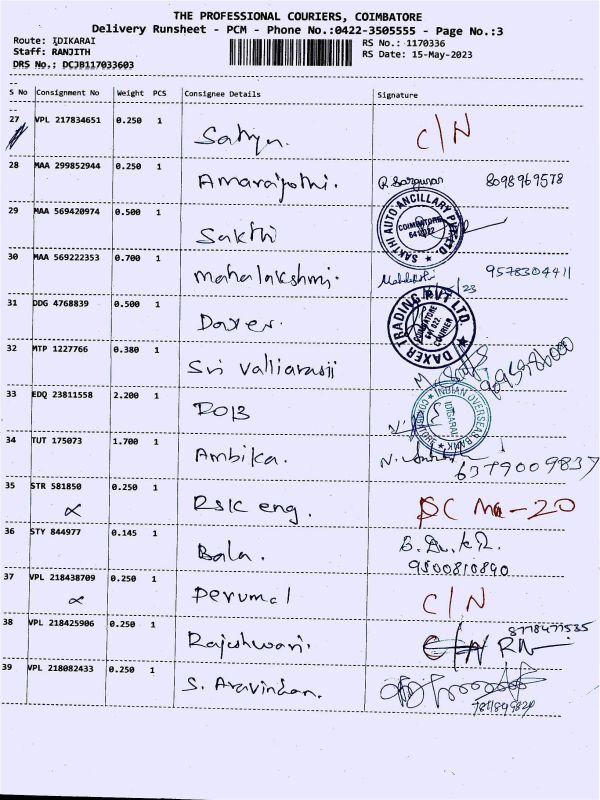 THE PROFESSIONAL COURIERS, COIMBATORE
Delivery Runsheet - PCM - Phone No.:0422-3505555 - Page No.:3
Route: IDIKARAI RS No.: 1170336
Staff: RANJITH RS Date: 15-May-2023
DRS No.: DCJB117033603
S No Consignment No Weight PCS Consignee Details Signature
27 VPL 217834651 0.250 1 Sathya. C/N
28 MAA 299852944 0.250 1 Amarajothi. 8098969578
29 MAA 569420974 0.500 1 Sakthi
SAKTHI AUTO ANCILLARY PVT LTD. COIMBATORE 641 022
30 MAA 569222353 0.700 1 mahalakshmi. 9578304411
31 DDG 4768839 0.500 1 Daxer.
DAXER TRADING PVT LTD. COIMBATORE 641 022.
32 MTP 1227766 0.380 1 Sri Valliarasii
33 EDQ 23811558 2.200 1 IOB
INDIAN OVERSEAS BANK IDIGARAI
34 TUT 175073 1.700 1 Ambika. 6379009837
35 STR 581850 0.250 1 RSK eng.
36 STY 844977 0.145 1 Bala.
9500810890
37 VPL 218438709 0.250 1 Perumal C/N
38 VPL 218425906 0.250 1 Rajeshwari. C/N 8778477535
39 VPL 218082433 0.250 1 S. Aravindan.